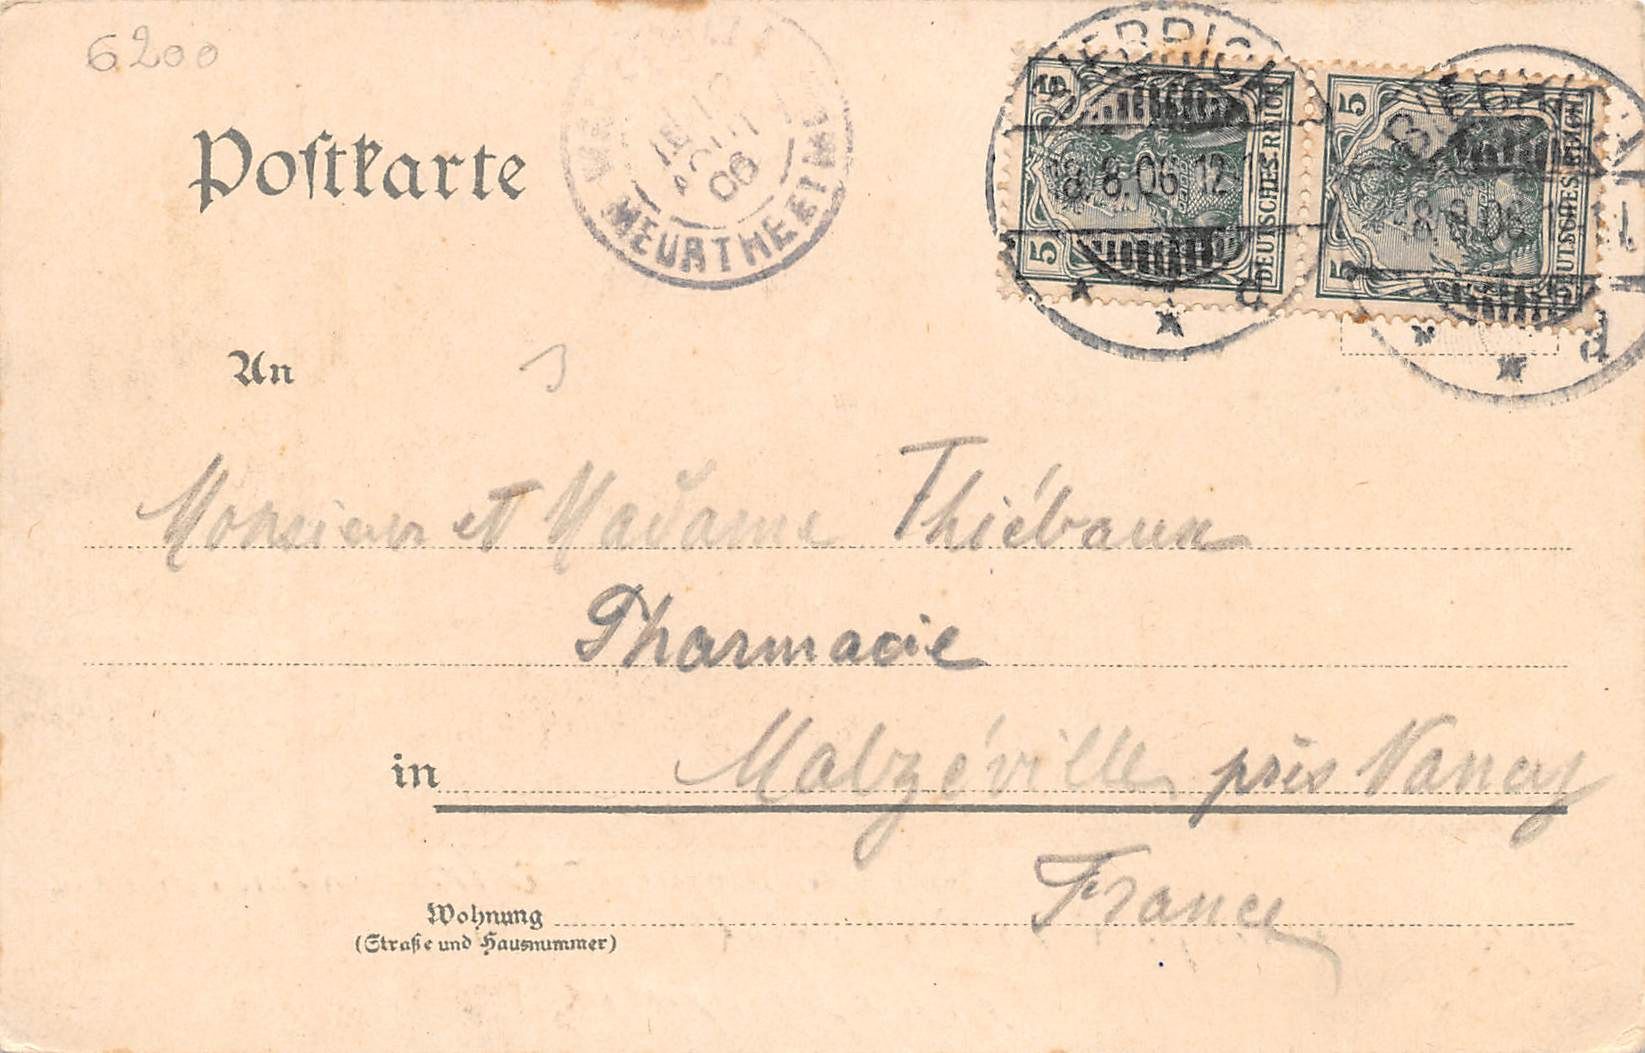 6200
Postkarte
MEURTHE ET M
AOUT
06
5 DEUTSCHES REICH 5
5 DEUTSCHES REICH 5
8.8.06 12-1
d
8.8.06
d
An
Monsieur et Madame Thiébaux
Pharmacie
in Malzéville près Nancy
France
Wohnung
(Straße und Hausnummer)